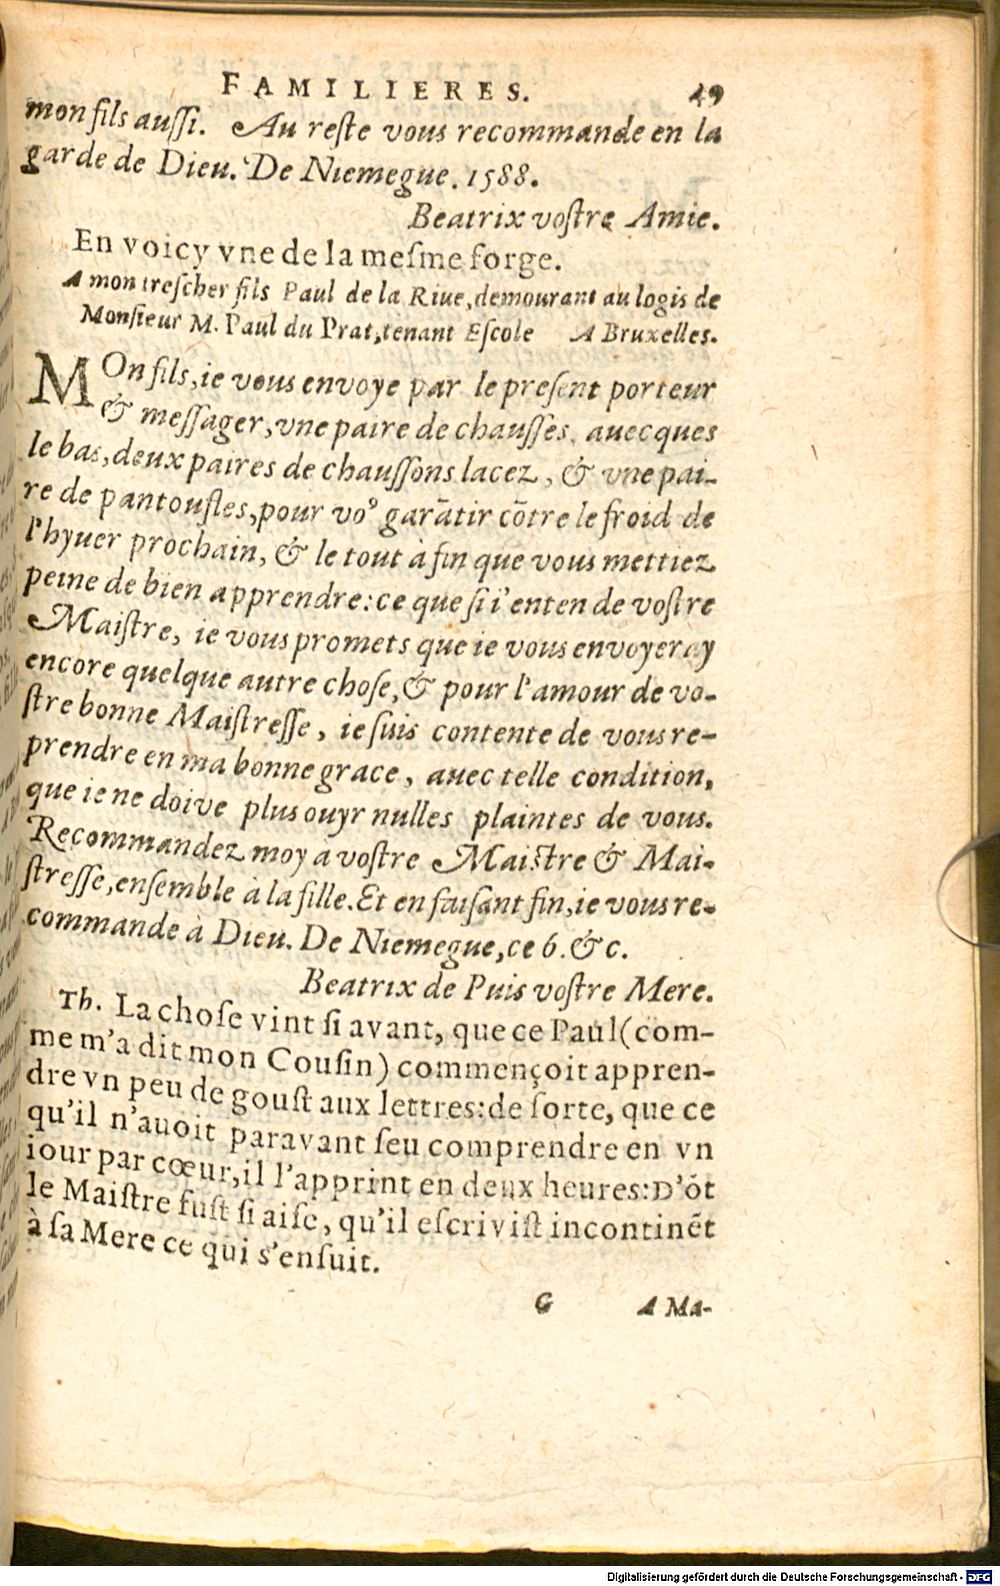 FAMILIERES. 49
mon fils auſſi. Au reſte vous recommande en la
garde de Dieu. De Niemegue. 1588.
Beatrix voſtre Amie.
En voicy vne de la meſme forge.
A mon treſcher fils Paul de la Riue, demourant au logis de
Monſieur M. Paul du Prat, tenant Eſcole A Bruxelles.
MOn fils, ie vous envoye par le preſent porteur
& meſſager, vne paire de chauſſes, auecques
le bas, deux paires de chauſſons lacez, & vne pai-
re de pantoufles, pour voꝰ garãtir cõtre le froid de
l'hyuer prochain, & le tout à fin que vous mettiez
peine de bien apprendre: ce que ſi i'enten de voſtre
Maiſtre, ie vous promets que ie vous envoyeray
encore quelque autre choſe, & pour l'amour de vo-
ſtre bonne Maiſtreſſe, ie ſuis contente de vous re-
prendre en ma bonne grace, auec telle condition,
que ie ne doive plus ouyr nulles plaintes de vous.
Recommandez moy à voſtre Maiſtre & Mai-
ſtreſſe, enſemble à la fille. Et en faiſant fin, ie vous re-
commande à Dieu. De Niemegue, ce 6. &c.
Beatrix de Puis voſtre Mere.
Th. La choſe vint ſi avant, que ce Paul (com-
me m'a dit mon Couſin) commençoit appren-
dre vn peu de gouſt aux lettres: de ſorte, que ce
qu'il n'auoit paravant ſeu comprendre en vn
iour par cœur, il l'apprint en deux heures: D'õt
le Maiſtre fuſt ſi aiſe, qu'il eſcriviſt incontinẽt
à ſa Mere ce qui s'enſuit.
G A Ma-
Digitalisierung gefördert durch die Deutsche Forschungsgemeinschaft - DFG